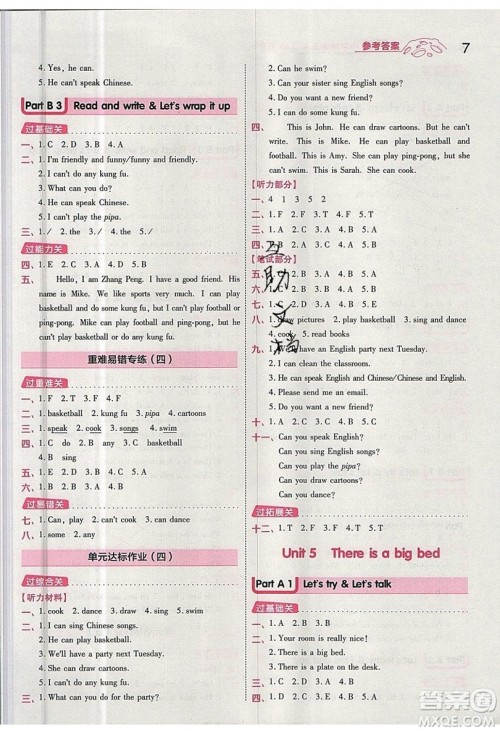 参考答案
7
4. Yes, he can.
5. He can't speak Chinese.
Part B 3 Read and write & Let's wrap it up
过基础关
一、1. C 2. D 3. B 4. A
二、1. I'm friendly and funny/funny and friendly.
2. I can't do any kung fu.
3. What can you do?
4. He can't speak Chinese.
5. I can't play the pipa.
三、1. / 2. the 3. / 4. the
过能力关
四、1. E 2. C 3. D 4. B 5. A
五、 Hello, I am Zhang Peng. I have a good friend. His
name is Mike. We like sports very much. I can play
football and ping-pong. Mike can play football or
ping-pong, but he can play basketball and do kung fu.
重难易错专练（四）
过重难关
一、1. F 2. T 3. F 4. T
二、1. basketball 2. kung fu 3. pipa 4. cartoons
三、1. speak 2. cook 3. songs 4. swim
四、1. C do 2. D any 3. A basketball
4. B sing
五、1. D 2. A 3. B 4. C
六、1. B 2. A 3. B 4. B
过易错关
七、1. do 2. Can, can 3. or 4. can dance
八、1. A 2. B 3. A
单元达标作业（四）
过综合关
【听力材料】
一、1. cook 2. dance 3. swim 4. draw 5. play
二、1. I can sing Chinese songs.
2. He can play basketball.
3. We'll have a party next Tuesday.
4. She can draw cartoons.
5. I can do some kung fu.
三、1. What can you do for the party?
2. Can he swim?
3. Can your sister sing English songs?
4. Do you want a new friend?
5. Can you do any kung fu?
四、 This is John. He can draw cartoons. But he can't
speak English. This is Mike. He can play basketball and
football. This is Amy. She can swim and cook. But she
can't swim. This is Sarah. She can do kung fu.
【听力部分】
一、4 1 3 5 2
二、1. A 2. B 3. A 4. B 5. A
三、1. B 2. A 3. B 4. A 5. B
四、
【笔试部分】
五、
六、
七、
八、1. draw pictures 2. play basketball 3. sing and dance
4. cook 5. read books
九、1. We'll have an English party next Tuesday.
2. I can clean the classroom.
3. He can speak English and Chinese/Chinese and English.
4. Please send me an email.
5. Do you want a new friend?
十、1. D 2. B 3. E 4. C 5. A
十一、 Can you speak English?
Can you sing English songs?
Can you play the pipa?
Can you draw cartoons?
Can you dance?
过拓展关
十二、1. T 2. F 3. F 4. T 5. T
Unit 5 There is a big bed
Part A 1 Let's try & Let's talk
过基础关
一、1. A 2. B 3. B
二、1. Your room is really nice!
2. There is a big bed.
3. There is a plate on the desk.
互助文档
答案圈
MXQE.COM